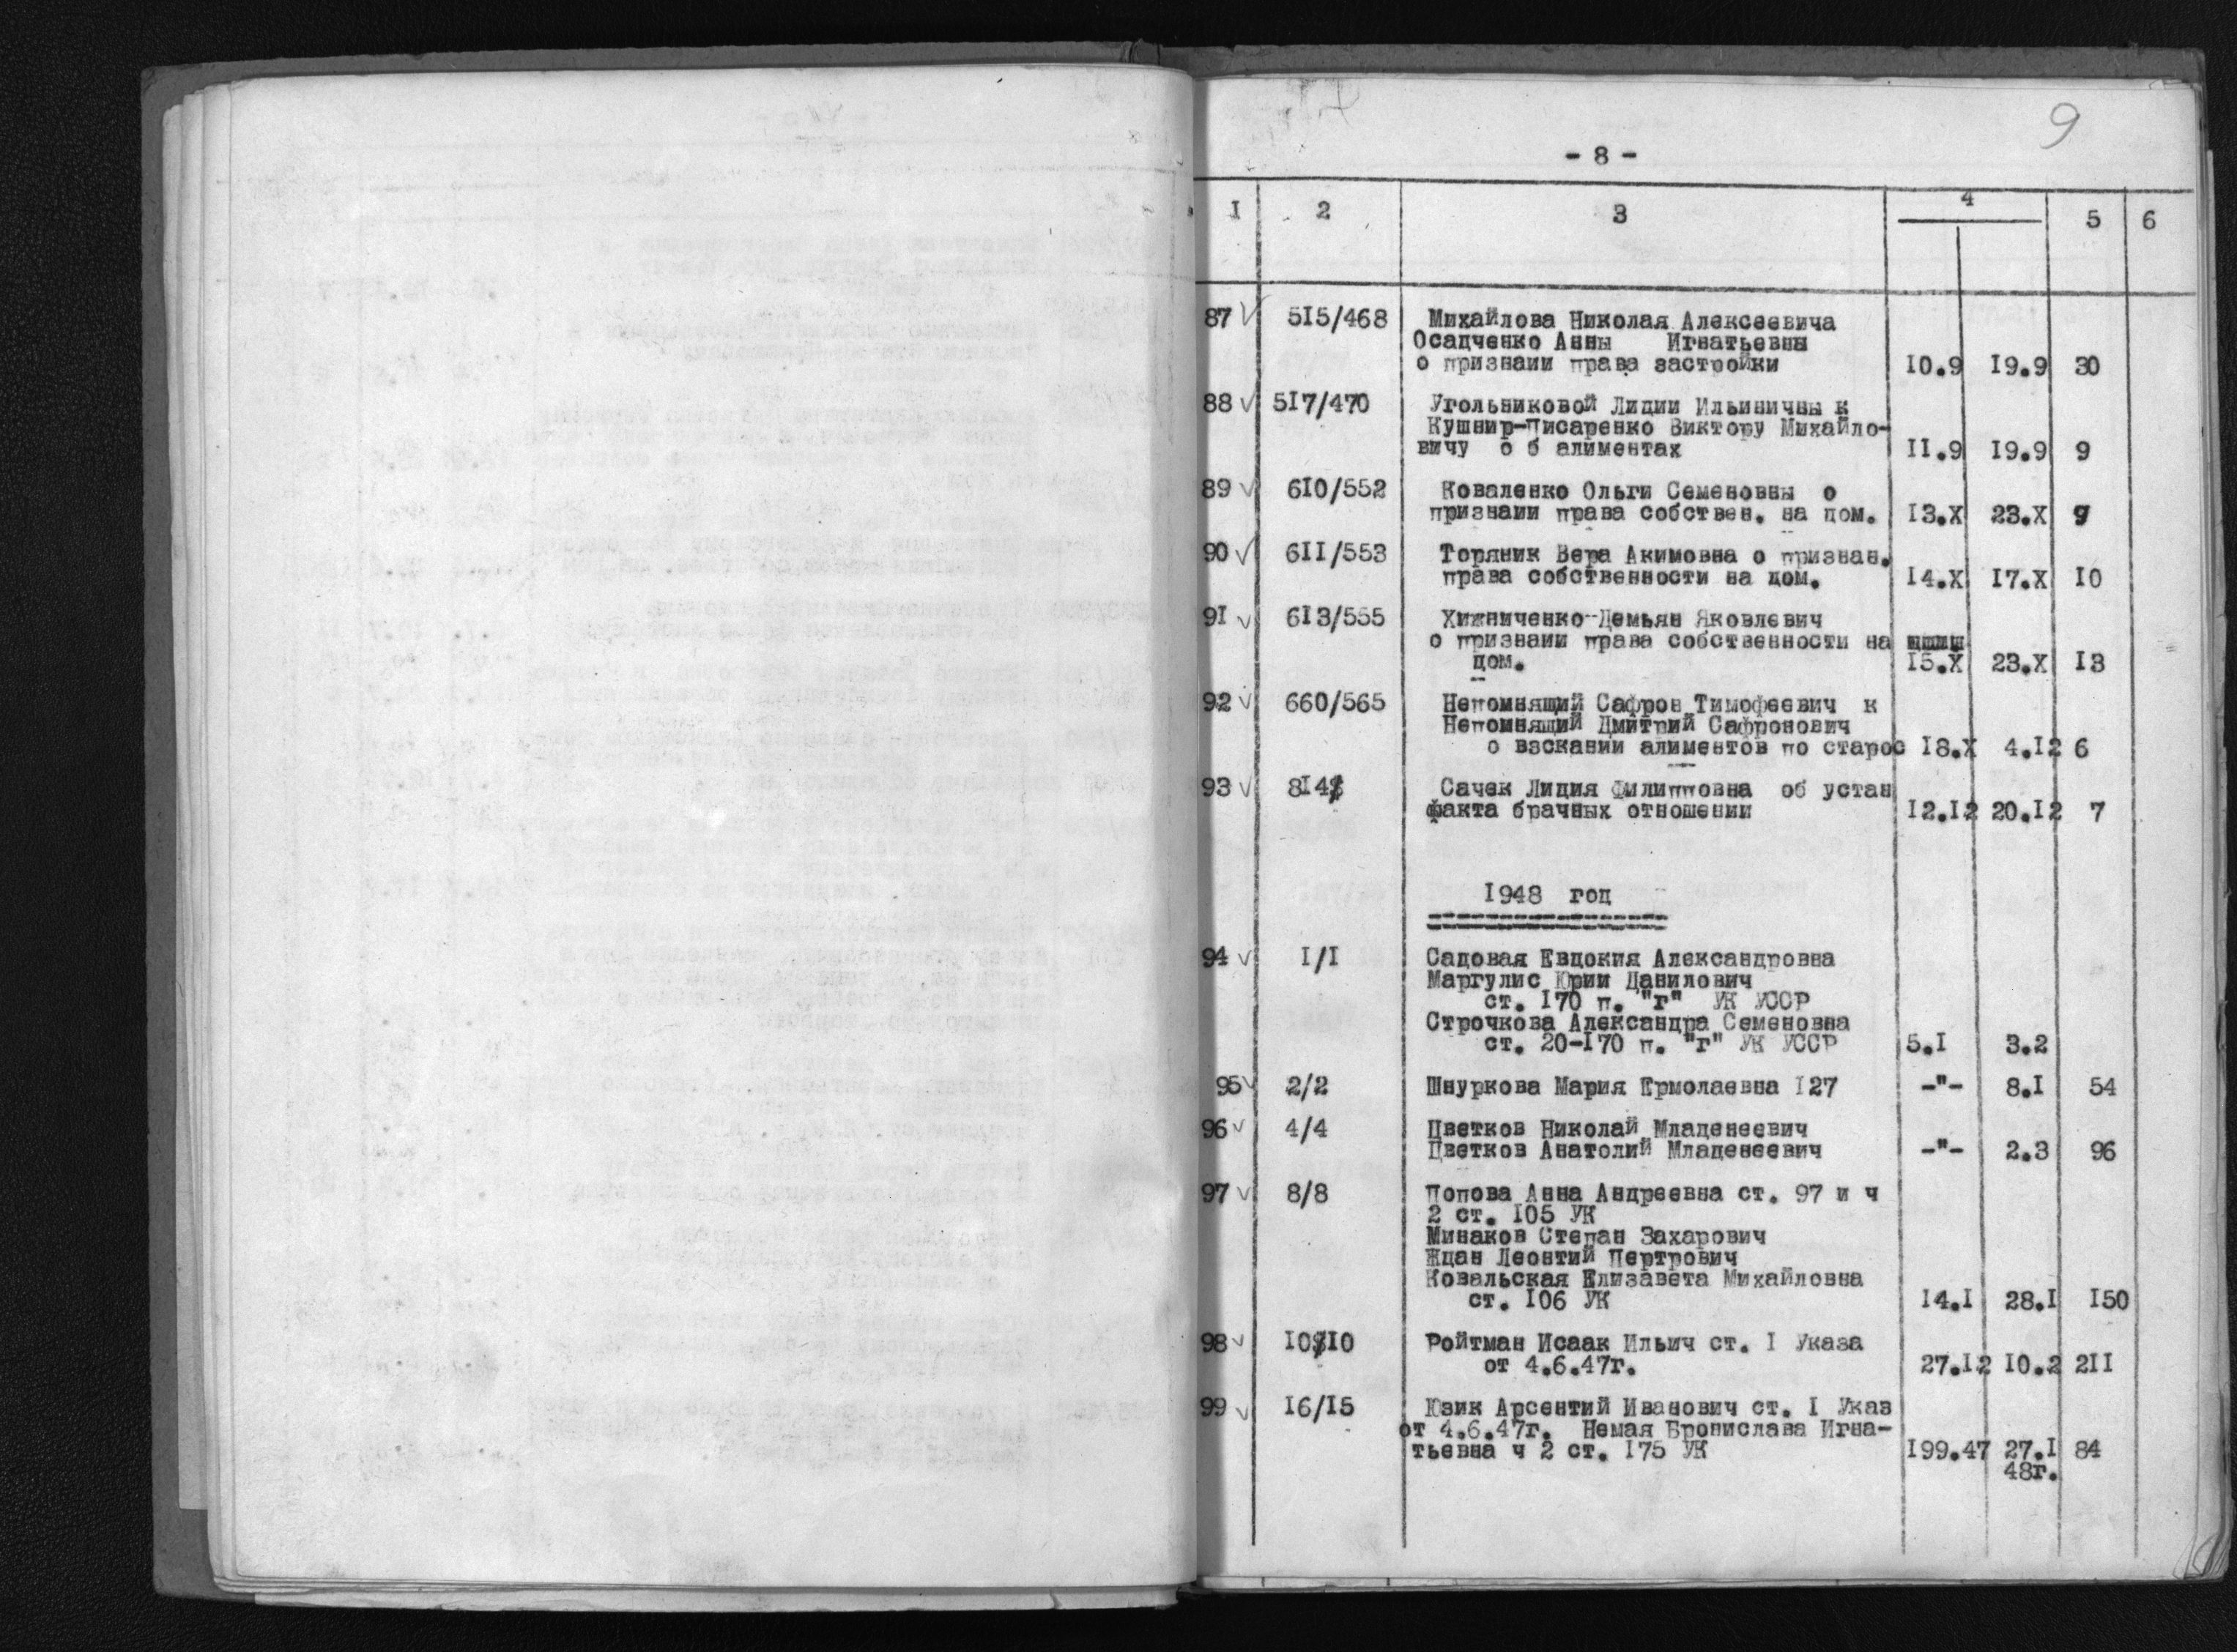 9
- 8 -
I 2 3 4 5 6
87 515/468 Михайлова Николая Алексеевича
Осадченко Анны Игнатьевны
о признаии права застройки 10.9 19.9 30
88 517/470 Угольниковой Лидии Ильиничны к
Кушнир-Писаренко Виктору Михайло-
вичу о б алиментах 11.9 19.9 9
89 610/552 Коваленко Ольги Семеновны о
признаии права собствен. на дом. 13.X 23.X 9
90 611/553 Торяник Вера Акимовна о признан.
права собственности на дом. 14.X 17.X 10
91 613/555 Хижниченко Демьян Яковлевич
о признаии права собственности на
дом. 15.X 23.X 13
92 660/565 Непомнящий Сафрон Тимофеевич к
Непомнящий Дмитрий Сафронович
о взскании алиментов по старос 18.X 4.12 6
93 814 Сачек Лидия Филипповна об устан
факта брачных отношении 12.12 20.12 7
1948 год
94 I/I Садовая Евдокия Александровна
Маргулис Юрии Данилович
ст. 170 п. "г" УК УССР
Строчкова Александра Семеновна
ст. 20-170 п. "г" УК УССР 5.I 3.2
95 2/2 Шнуркова Мария Ермолаевна 127 -"- 8.I 54
96 4/4 Цветков Николай Младенеевич
Цветков Анатолий Младенеевич -"- 2.3 96
97 8/8 Попова Анна Андреевна ст. 97 и ч
2 ст. 105 УК
Минаков Степан Захарович
Ждан Леонтий Пертрович
Ковальская Елизавета Михайловна
ст. 106 УК 14.I 28.I 150
98 10/10 Ройтман Исаак Ильич ст. I Указа
от 4.6.47г. 27.12 10.2 211
99 16/15 Юзик Арсентий Иванович ст. I Указ
от 4.6.47г. Немая Бронислава Игна-
тьевна ч 2 ст. 175 УК 199.47 27.I 84
48г.